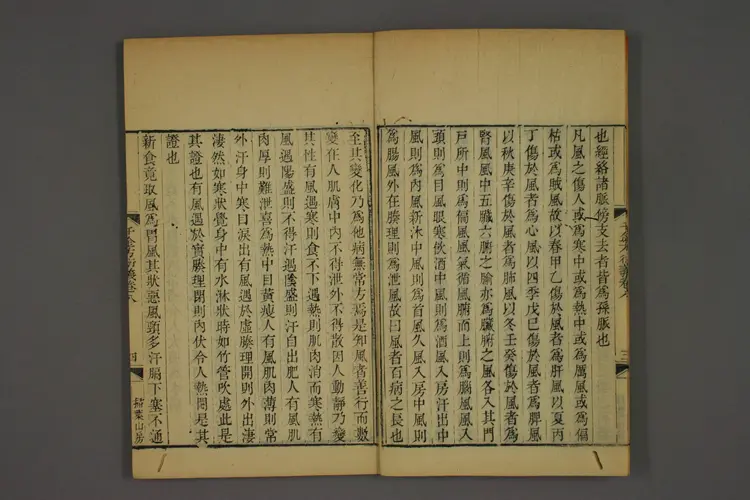 也經絡諸脈旁支去者皆爲孫脈也
凡風之傷人或爲寒中或爲熱中或爲厲風或爲偏
枯或爲賊風故以春甲乙傷於風者爲肝風以夏丙
丁傷於風者爲心風以四季戊巳傷於風者爲脾風
以秋庚辛傷於風者爲肺風以冬壬癸傷於風者爲
腎風風中五臟六腑之腧亦爲臟腑之風各入其門
戸所中則爲偏風風氣循風府而上則爲腦風風入
頭則爲目風眼寒飲酒中風則爲酒風入房汗出中
風則爲內風新沐中風則爲首風久風入房中風則
爲腸風外在腠理則爲泄風故曰風者百病之長也
至其變化乃爲他病無常方焉是知風者善行而數
變在人肌膚中內不得泄外不得散因人動靜乃變
其性有風遇寒則食不下遇熱則肌肉消而寒熱有
風遇陽盛則不得汗遇陰盛則汗自出肥人有風肌
肉厚則難泄喜爲熱中目黃瘦人有風肌肉薄則常
外汗身中寒目淚出有風遇於虛腠理開則外出凄
凄然如寒狀覺身中有水淋狀時如竹管吹處此是
其證也有風遇於實腠理閉則內伏令人熱悶是其
證也
新食竟取風爲胃風其狀惡風頸多汗膈下塞不通
千金方衍義卷八
四
掃葉山房
三